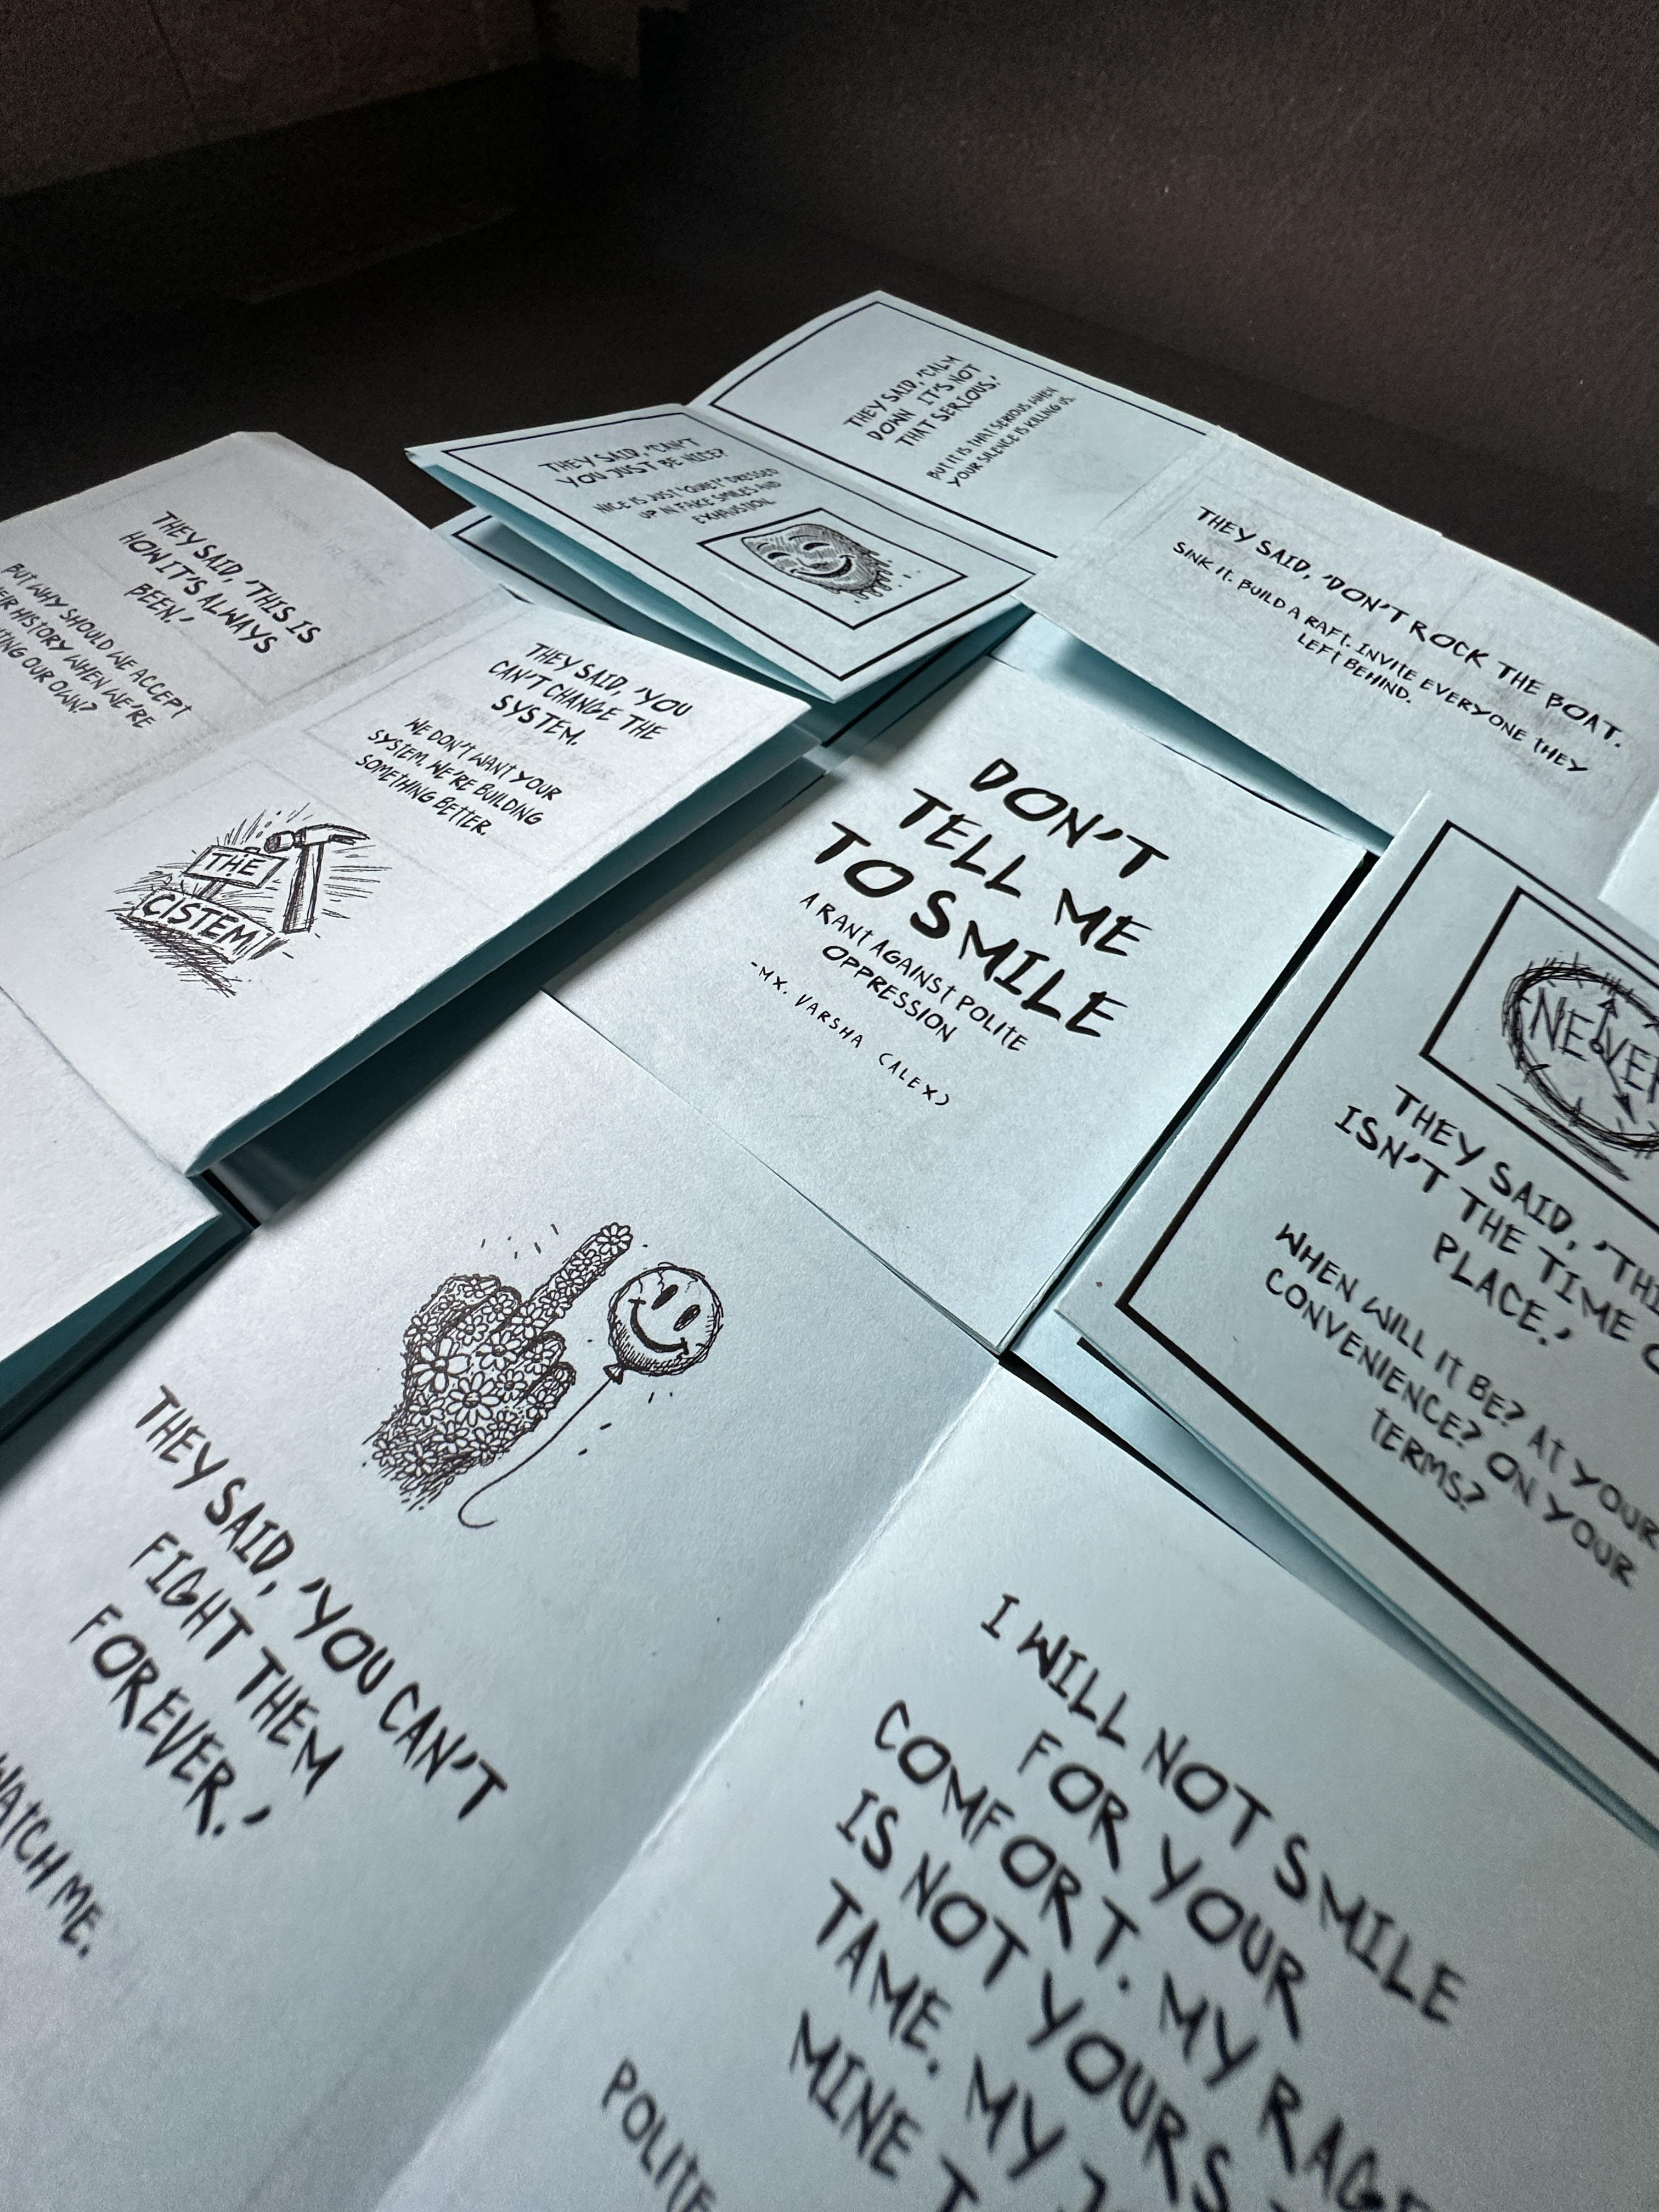 THEY SAID, 'CALM
DOWN IT'S NOT
THAT SERIOUS.'
BUT IT IS THAT SERIOUS WHEN
YOUR SILENCE IS KILLING US.
THEY SAID, 'CAN'T
YOU JUST BE NICE?'
NICE IS JUST "QUIET" DRESSED
UP IN FAKE SMILES AND
EXHAUSTION.
THEY SAID, 'DON'T ROCK THE BOAT.
SINK IT. BUILD A RAFT. INVITE EVERYONE THEY
LEFT BEHIND.
THEY SAID, 'THIS IS
HOW IT'S ALWAYS
BEEN.'
BUT WHY SHOULD WE ACCEPT
HISTORY WHEN WE'RE
OUR OWN?
THEY SAID, 'YOU
CAN'T CHANGE THE
SYSTEM.
WE DON'T WANT YOUR
SYSTEM. WE'RE BUILDING
SOMETHING BETTER.
THE
CISTEM
DON'T
TELL ME
TO SMILE
A RANT AGAINST POLITE
OPPRESSION
-MX. VARSHA (ALEX)
THEY SAID,
ISN'T THE TIME
PLACE.'
WHEN WILL IT BE? AT YOUR
CONVENIENCE? ON YOUR
TERMS?
THEY SAID, 'YOU CAN'T
FIGHT THEM
FOREVER.'
WATCH ME.
I WILL NOT SMILE
FOR YOUR
COMFORT. MY RAGE
IS NOT YOURS
TAME. MY
MINE
POLITE